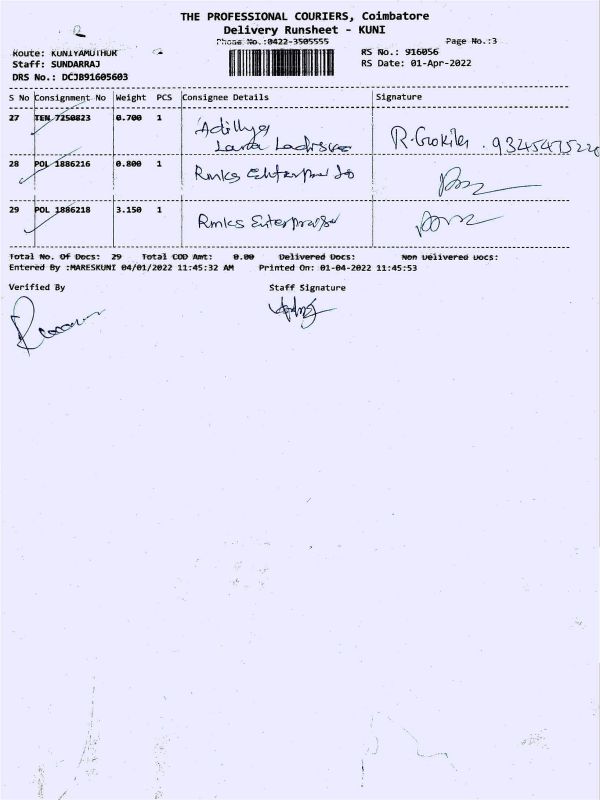 THE PROFESSIONAL COURIERS, Coimbatore
Delivery Runsheet - KUNI
Phone No.:0422-3505555 Page No.:3
2
Route: KUNIYAMUTHUR 2 RS No.: 916056
Staff: SUNDARRAJ RS Date: 01-Apr-2022
DRS No.: DCJB91605603
S No Consignment No Weight PCS Consignee Details Signature
27 TEN 7250823 0.700 1
28 POL 1886216 0.800 1 Rmks
29 POL 1886218 3.150 1 Rmks Enterprise
Total No. Of Docs: 29 Total COD Amt: 0.00 Delivered Docs: Non Delivered Docs:
Entered By :MARESKUNI 04/01/2022 11:45:32 AM Printed On: 01-04-2022 11:45:53
Verified By Staff Signature